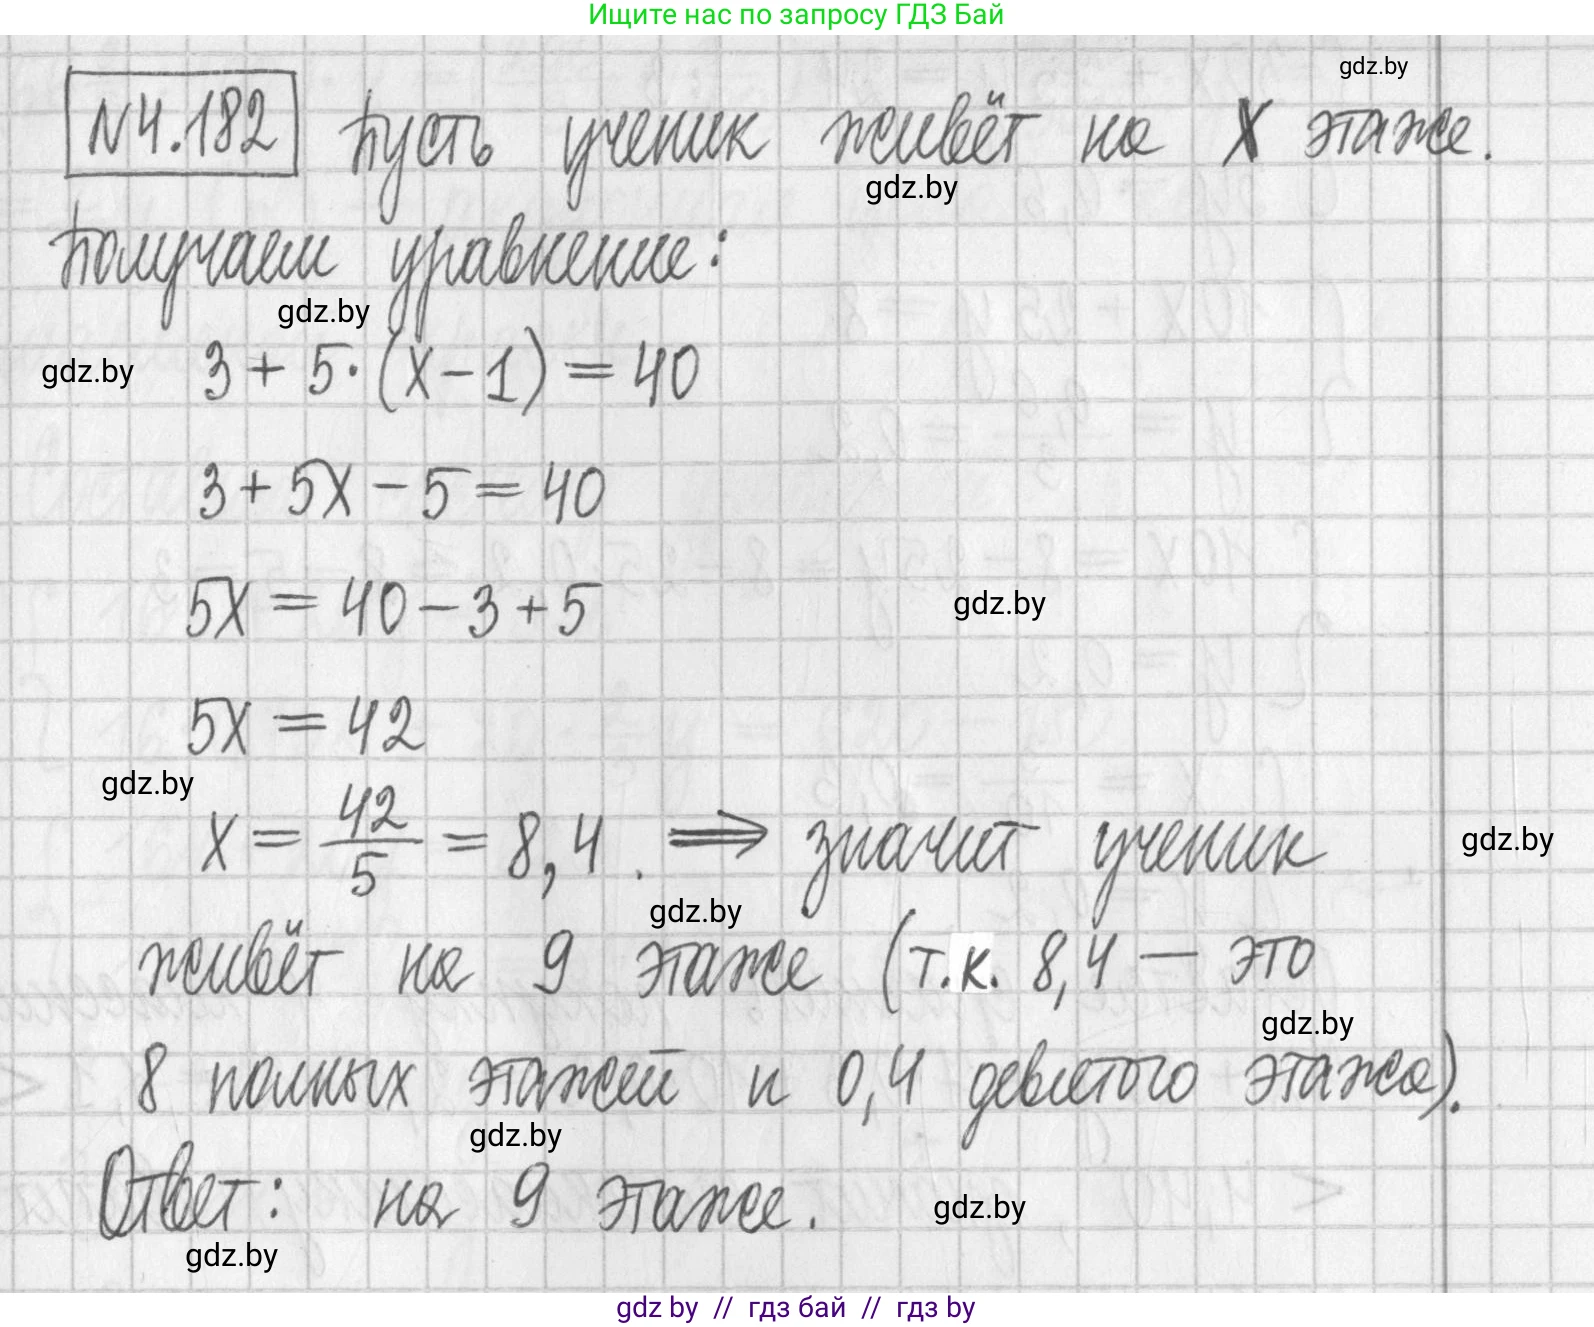 Ищите нас по запросу ГДЗ Бай
gdz.by
№4.182 Пусть ученик живёт на x этаже.
gdz.by
Получаем уравнение:
gdz.by
gdz.by
3 + 5·(x-1) = 40
3 + 5x - 5 = 40
5x = 40 - 3 + 5
gdz.by
5x = 42
gdz.by
x = 42/5 = 8,4. ⟹ значит ученик
gdz.by
gdz.by
живёт на 9 этаже (т.к. 8,4 — это
gdz.by
8 полных этажей и 0,4 девятого этажа).
gdz.by
Ответ: на 9 этаже.
gdz.by
gdz.by
gdz by // гдз бай // гдз by